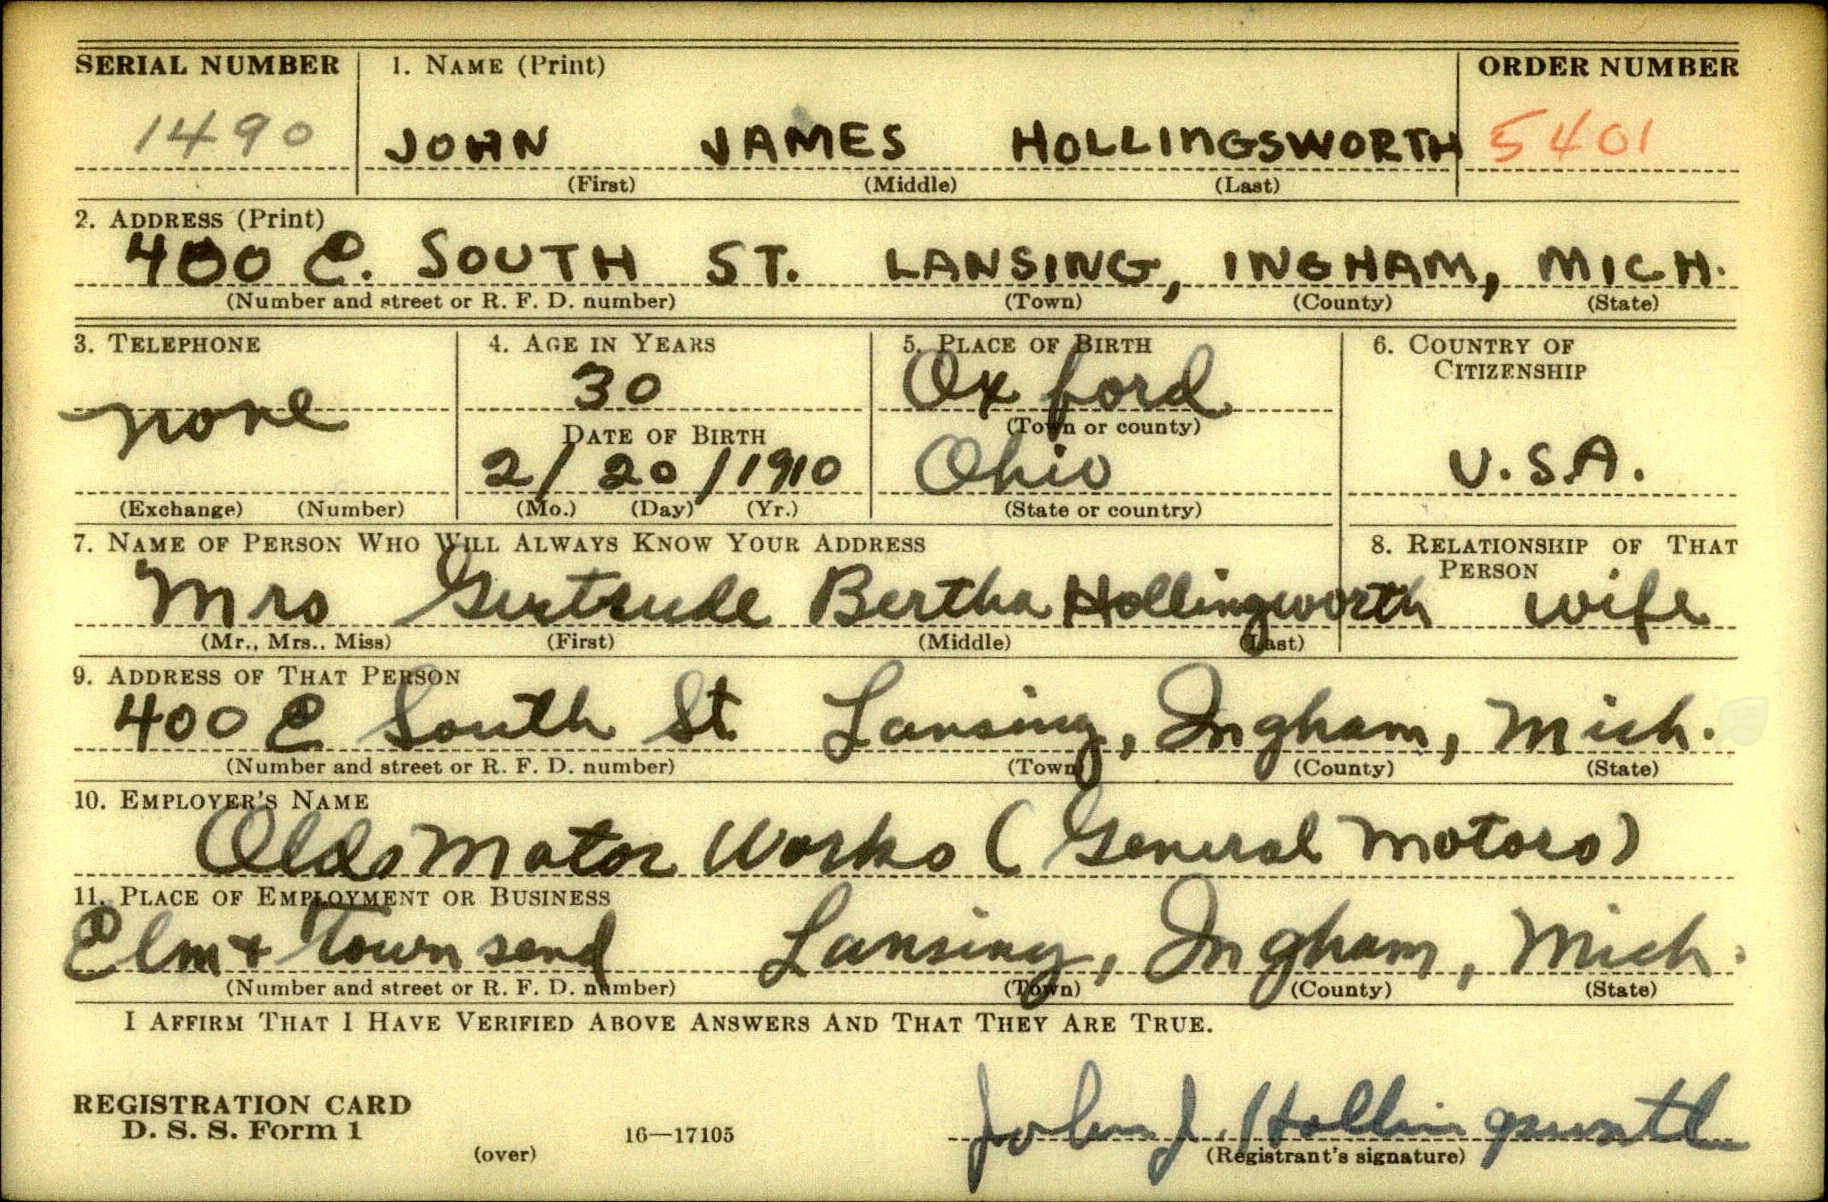 SERIAL NUMBER 1. NAME (Print) ORDER NUMBER
1490 JOHN JAMES HOLLINGSWORTH 5401
(First) (Middle) (Last)
2. ADDRESS (Print)
400 E. SOUTH ST. LANSING, INGHAM, MICH.
(Number and street or R. F. D. number) (Town) (County) (State)
3. TELEPHONE 4. AGE IN YEARS 5. PLACE OF BIRTH 6. COUNTRY OF
CITIZENSHIP
none 30 Oxford
DATE OF BIRTH (Town or county)
2/20/1910 Ohio U.S.A.
(Exchange) (Number) (Mo.) (Day) (Yr.) (State or country)
7. NAME OF PERSON WHO WILL ALWAYS KNOW YOUR ADDRESS 8. RELATIONSHIP OF THAT
PERSON
Mrs Gertrude Bertha Hollingworth wife
(Mr., Mrs., Miss) (First) (Middle) (Last)
9. ADDRESS OF THAT PERSON
400 E South St Lansing, Ingham, Mich.
(Number and street or R. F. D. number) (Town) (County) (State)
10. EMPLOYER'S NAME
Olds Motor Works (General Motors)
11. PLACE OF EMPLOYMENT OR BUSINESS
Elm + Townsend Lansing, Ingham, Mich.
(Number and street or R. F. D. number) (Town) (County) (State)
I AFFIRM THAT I HAVE VERIFIED ABOVE ANSWERS AND THAT THEY ARE TRUE.
REGISTRATION CARD
D. S. S. Form 1
(over) 16—17105
John J. Hollingsworth
(Registrant's signature)